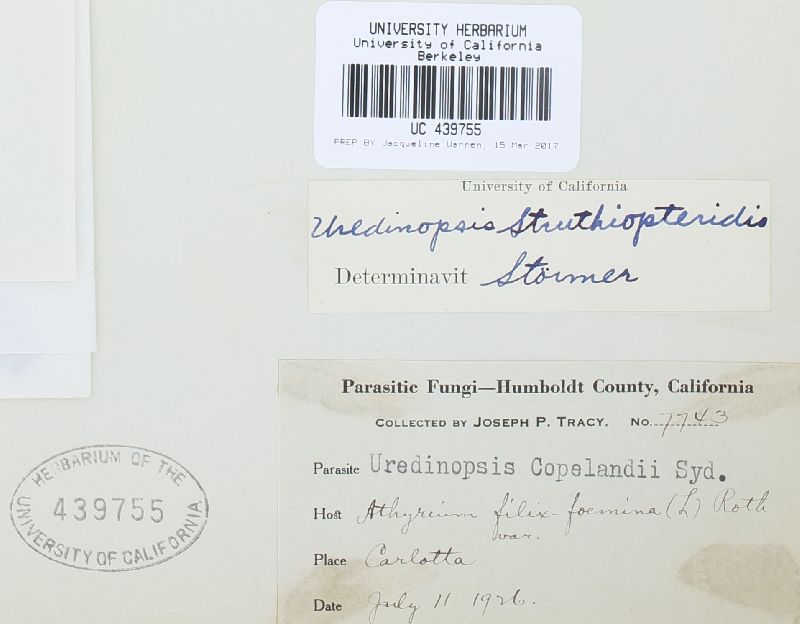 UNIVERSITY HERBARIUM
University of California
Berkeley
UC 439755
PREP BY Jacqueline Warren, 15 Mar 2017
University of California
Uredinopsis Struthiopteridis
Determinavit Störmer
Parasitic Fungi—Humboldt County, California
COLLECTED BY JOSEPH P. TRACY. NO. 7743
Parasite Uredinopsis Copelandii Syd.
Host Athyrium filix-foemina (L) Roth
var.
Place Carlotta
Date July 11 1926.
HERBARIUM OF THE
439755
UNIVERSITY OF CALIFORNIA